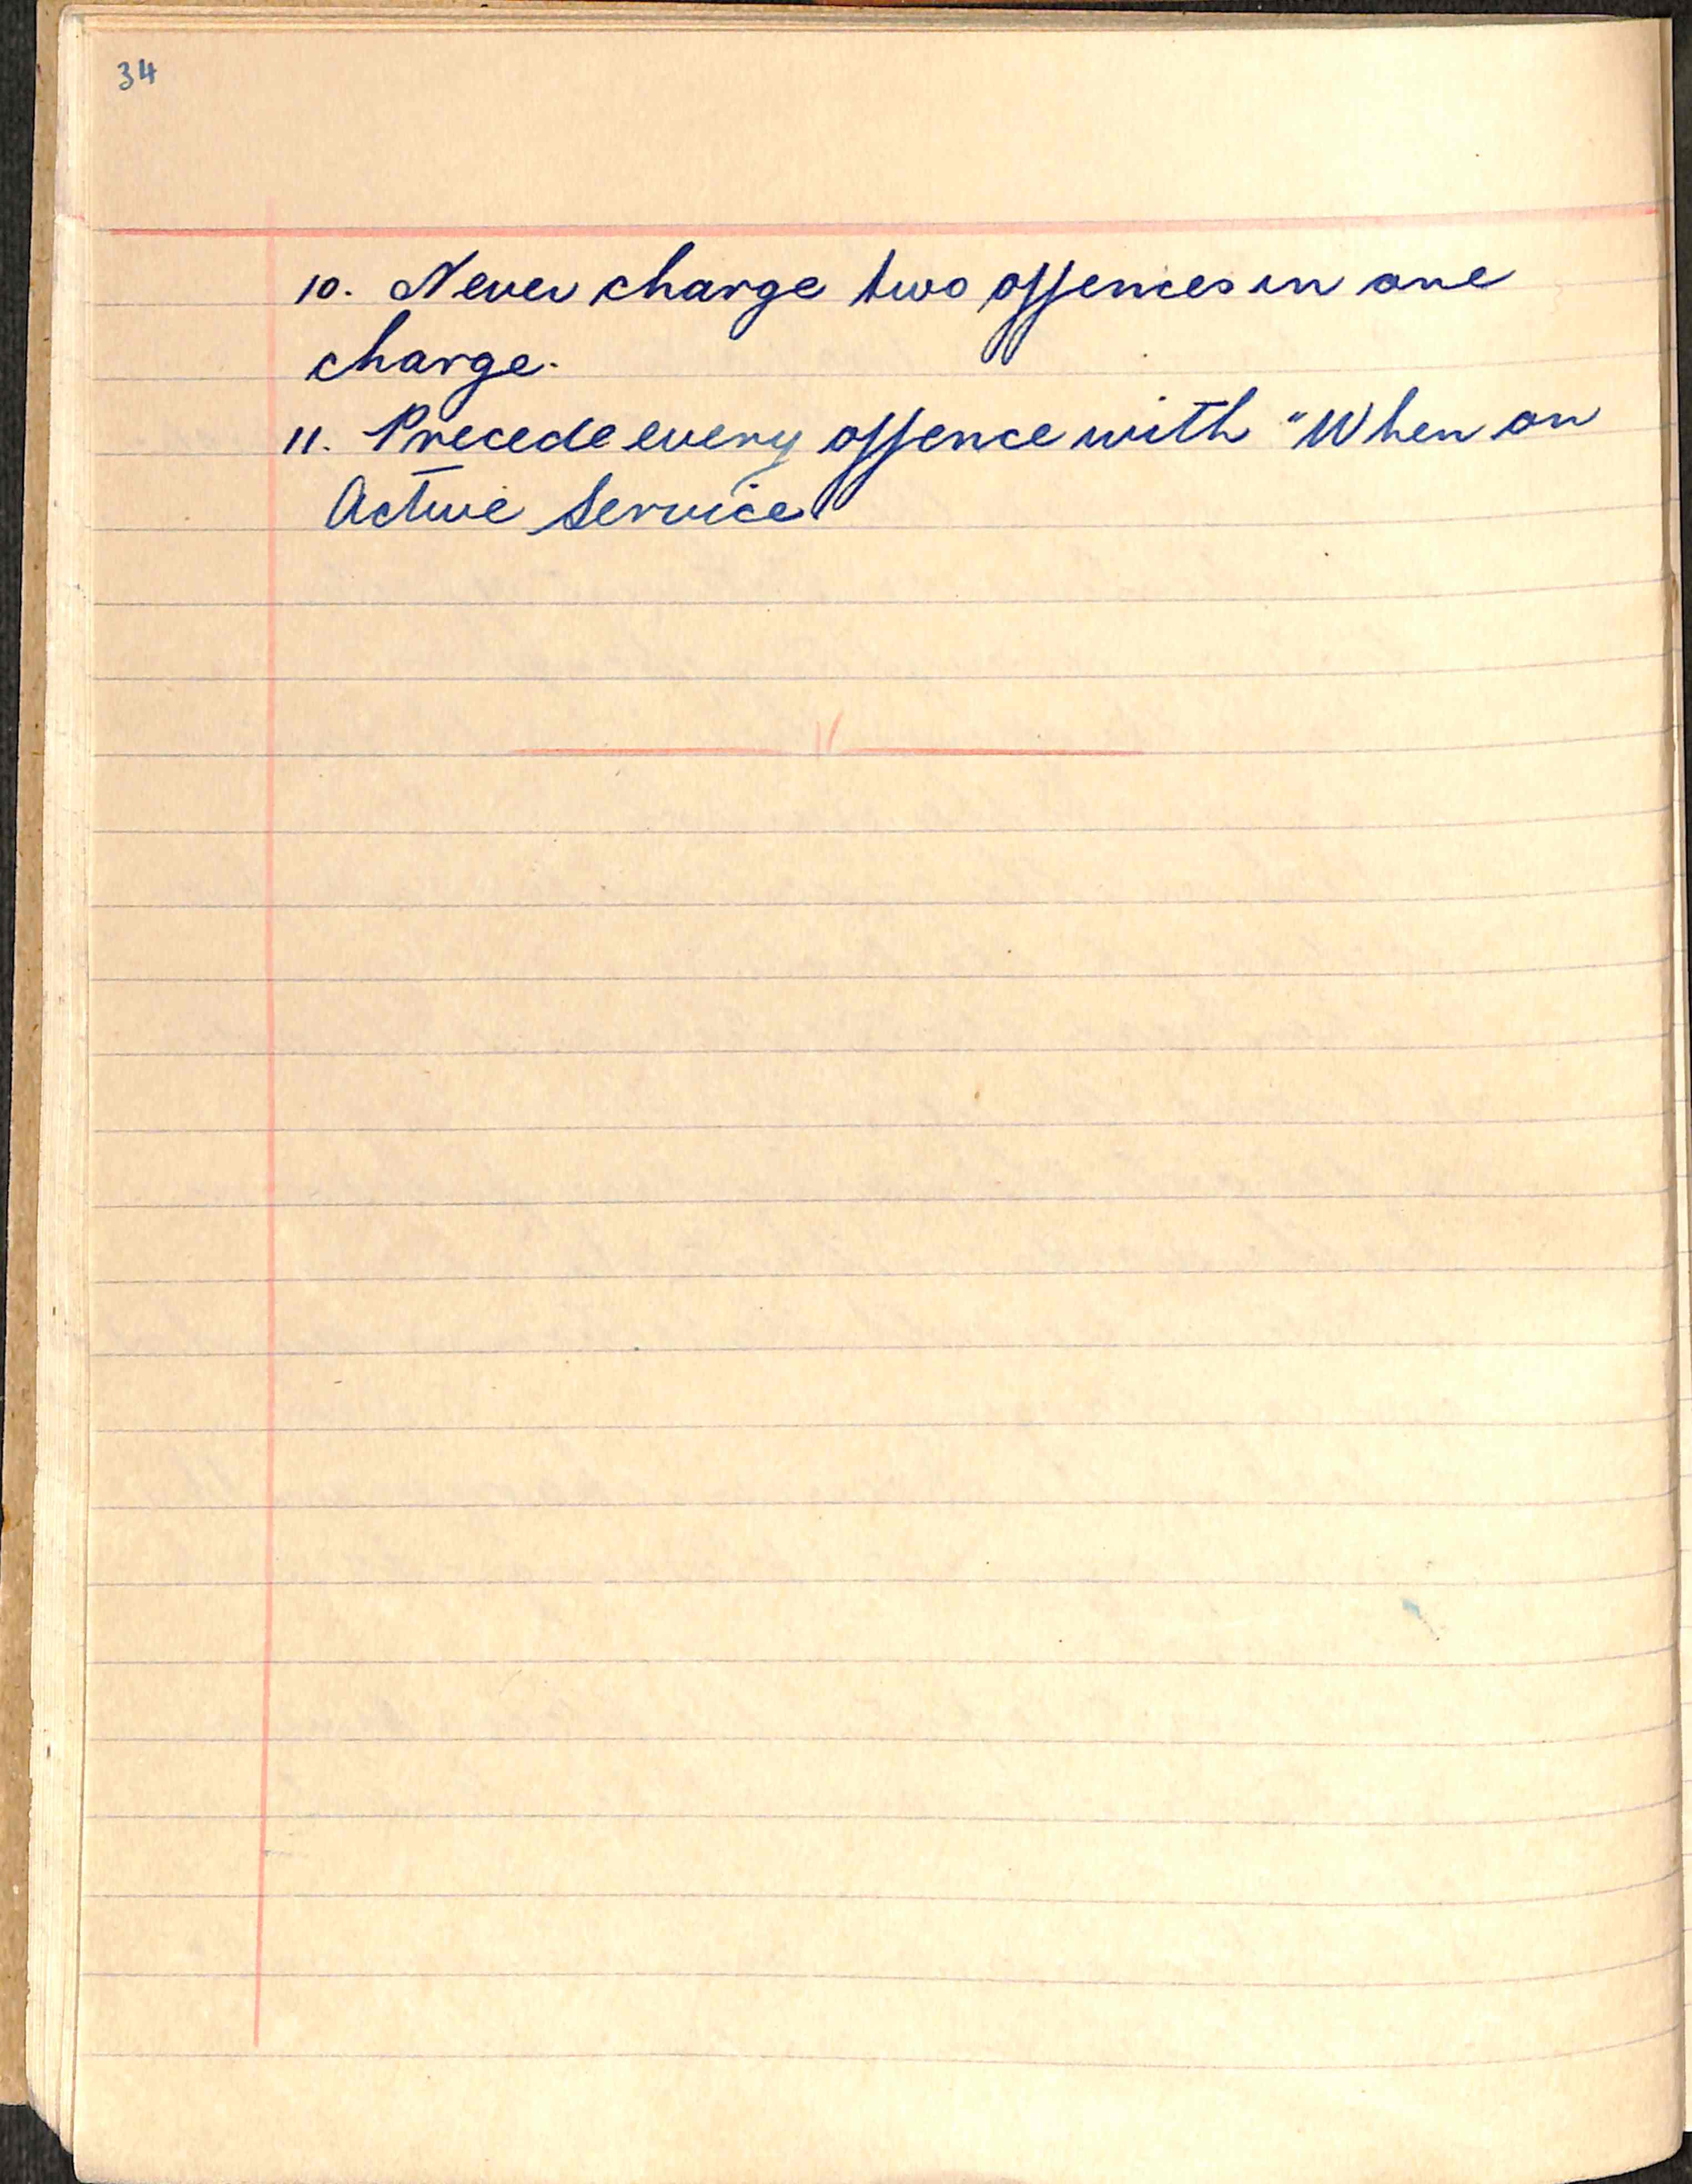 34
10. Never charge two offences in one
charge.
11. Precede every offence with "When on
Active Service"